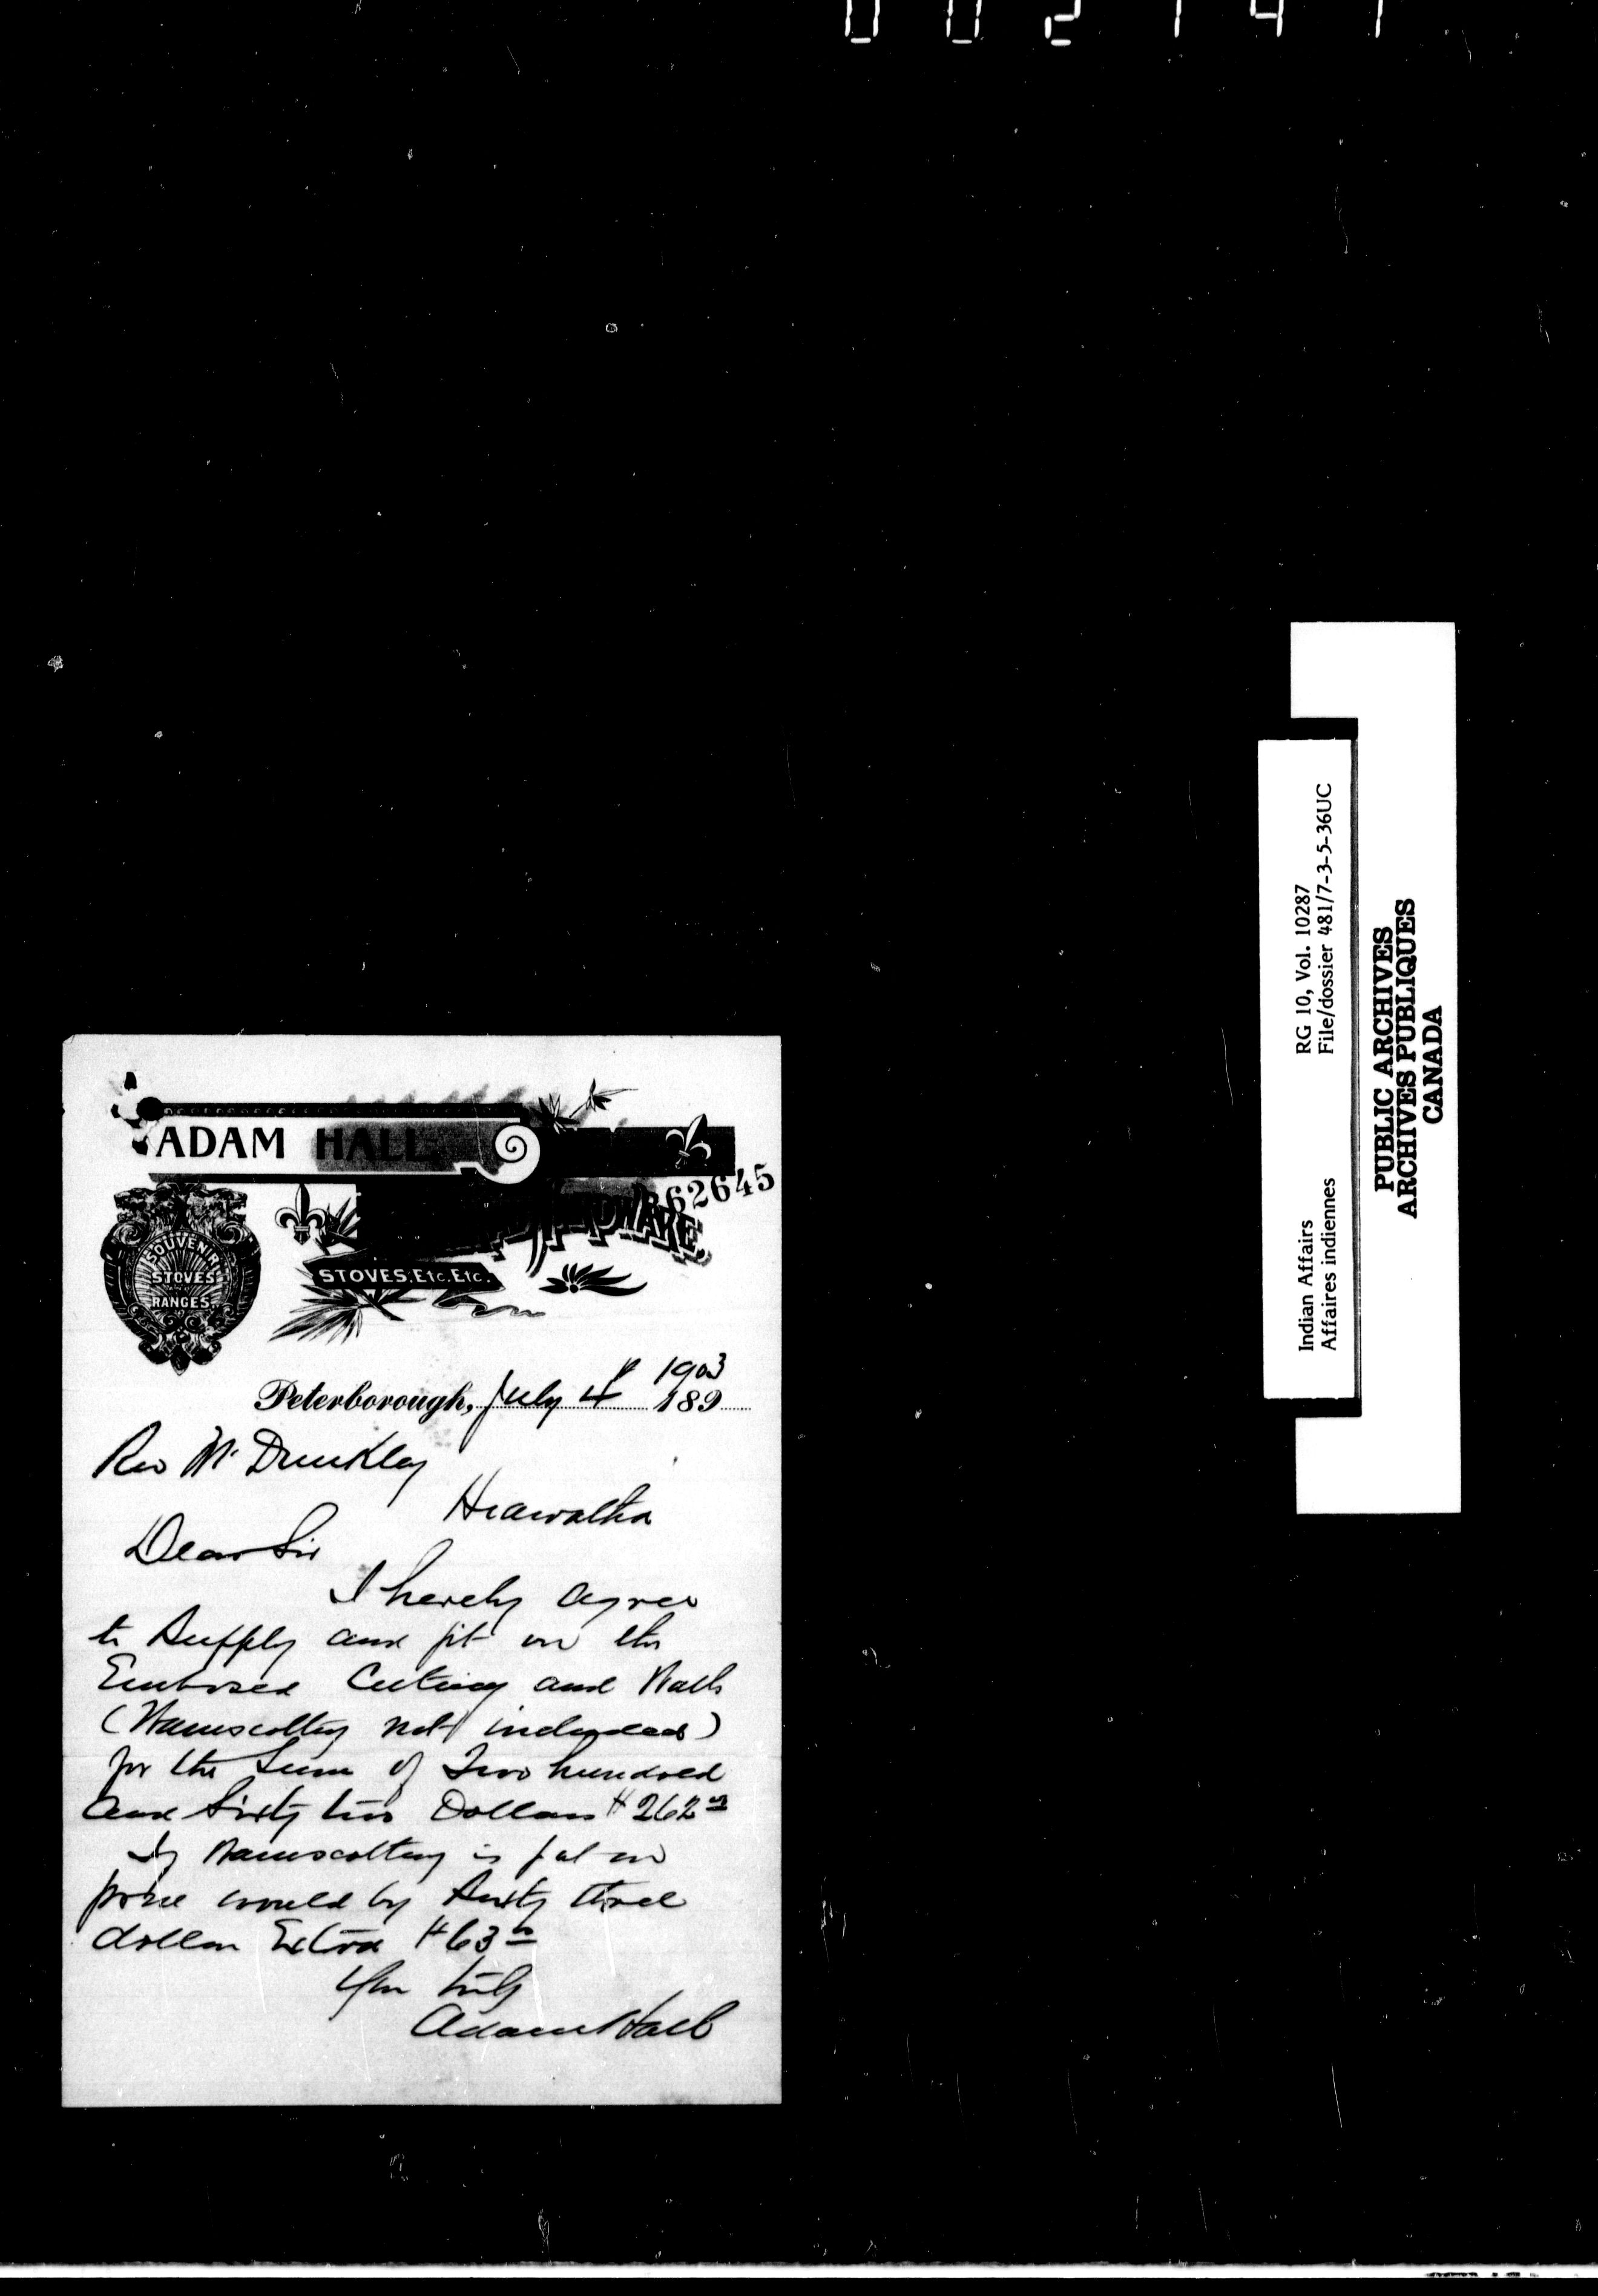 002141
ADAM HALL
262645
HARDWARE.
STOVES. Etc. Etc.
SOUVENIR
STOVES
RANGES
1903
Peterborough, July 4 189
Rev Mr Dunkley
Hiawatha
Dear Sir
I hereby agree
to Supply and fit on the
Embossed Ceiling and Walls
(Wainscotting not included)
for the Sum of Two hundred
and Sixty two Dollars $262
If Wainscotting is put on
price would be Sixty three
dollars Extra $63
Yours truly
Adam Hall
Indian Affairs RG 10, Vol. 10287
Affaires indiennes File/dossier 481/7-3-5-36UC
PUBLIC ARCHIVES
ARCHIVES PUBLIQUES
CANADA